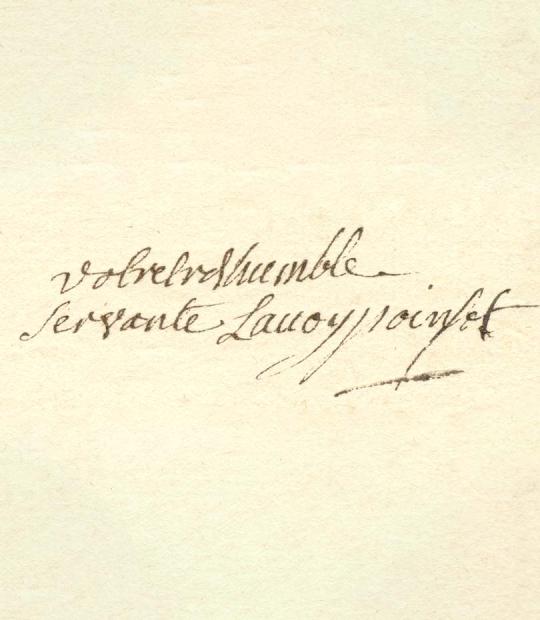 votre trés humble
servante Lavoy poinsot